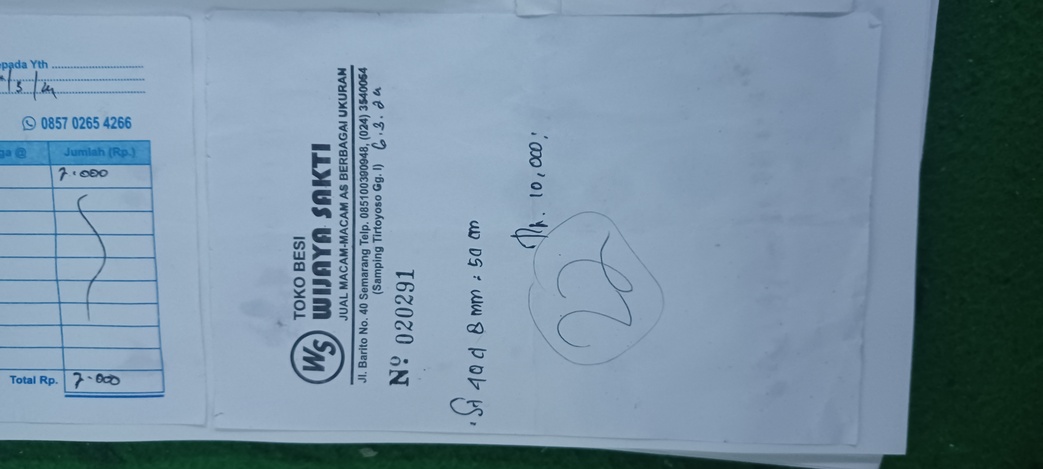 pada Yth
0857 0265 4266
ga @ Jumlah (Rp.)
7.000
Total Rp. 7.000
WS
TOKO BESI
WIJAYA SAKTI
JUAL MACAM-MACAM AS BERBAGAI UKURAN
Jl. Barito No. 40 Semarang Telp. 085100390948, (024) 3540064
(Samping Tirtoyoso Gg. I) 6.3.24
Nº 020291
St 40 d 8 mm : 50 cm
Rp. 10,000,-
22